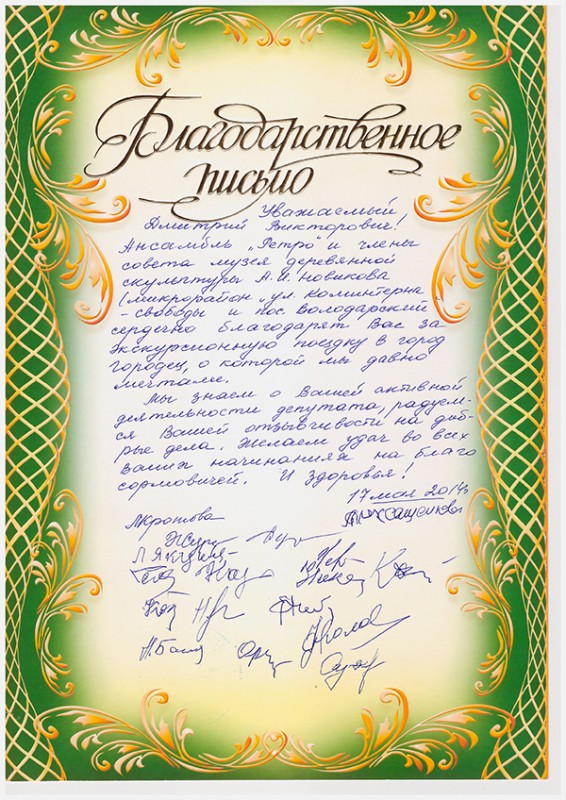 Благодарственное
письмо
Уважаемый
Дмитрий Викторович!
Ансамбль „Ретро" и члены
совета музея деревянной
скульптуры А.И. Новикова
(микрорайон „ул. Коминтерна
- свободы и пос. Володарский
сердечно благодарят Вас за
экскурсионную поездку в город
Городец, о которой мы давно
мечтали.
Мы знаем о Вашей активной
деятельности депутата, радуем-
ся Вашей отзывчивости на доб-
рые дела. Желаем удач во всех
Ваших начинаниях на благо
сормовичей. И здоровья!
17 мая